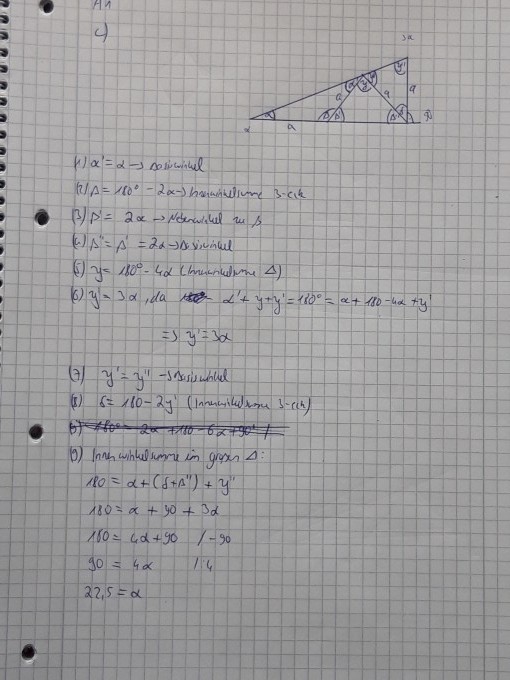 A1
c)
3α
a
a
a
α
a
(1) α' = α → Basiswinkel
(2) β = 180° - 2α → Innenwinkelsumme 3-eck
(3) β' = 2α → Nebenwinkel zu β
(4) β'' = β' = 2α → Basiswinkel
(5) γ = 180° - 4α (Innenwinkelsumme Δ)
(6) γ' = 3α, da α' + γ + γ' = 180° = α + 180 - 4α + γ'
=> γ' = 3α
(7) γ' = γ'' → Basiswinkel
(8) δ = 180 - 2γ' (Innenwinkelsumme 3-eck)
(9) 180° = 2α + 180 - 6α + 90° /
(9) Innenwinkelsumme im großen Δ:
180 = α + (δ + β'') + γ''
180 = α + 90 + 3α
180 = 4α + 90 / -90
90 = 4α / :4
22,5 = α